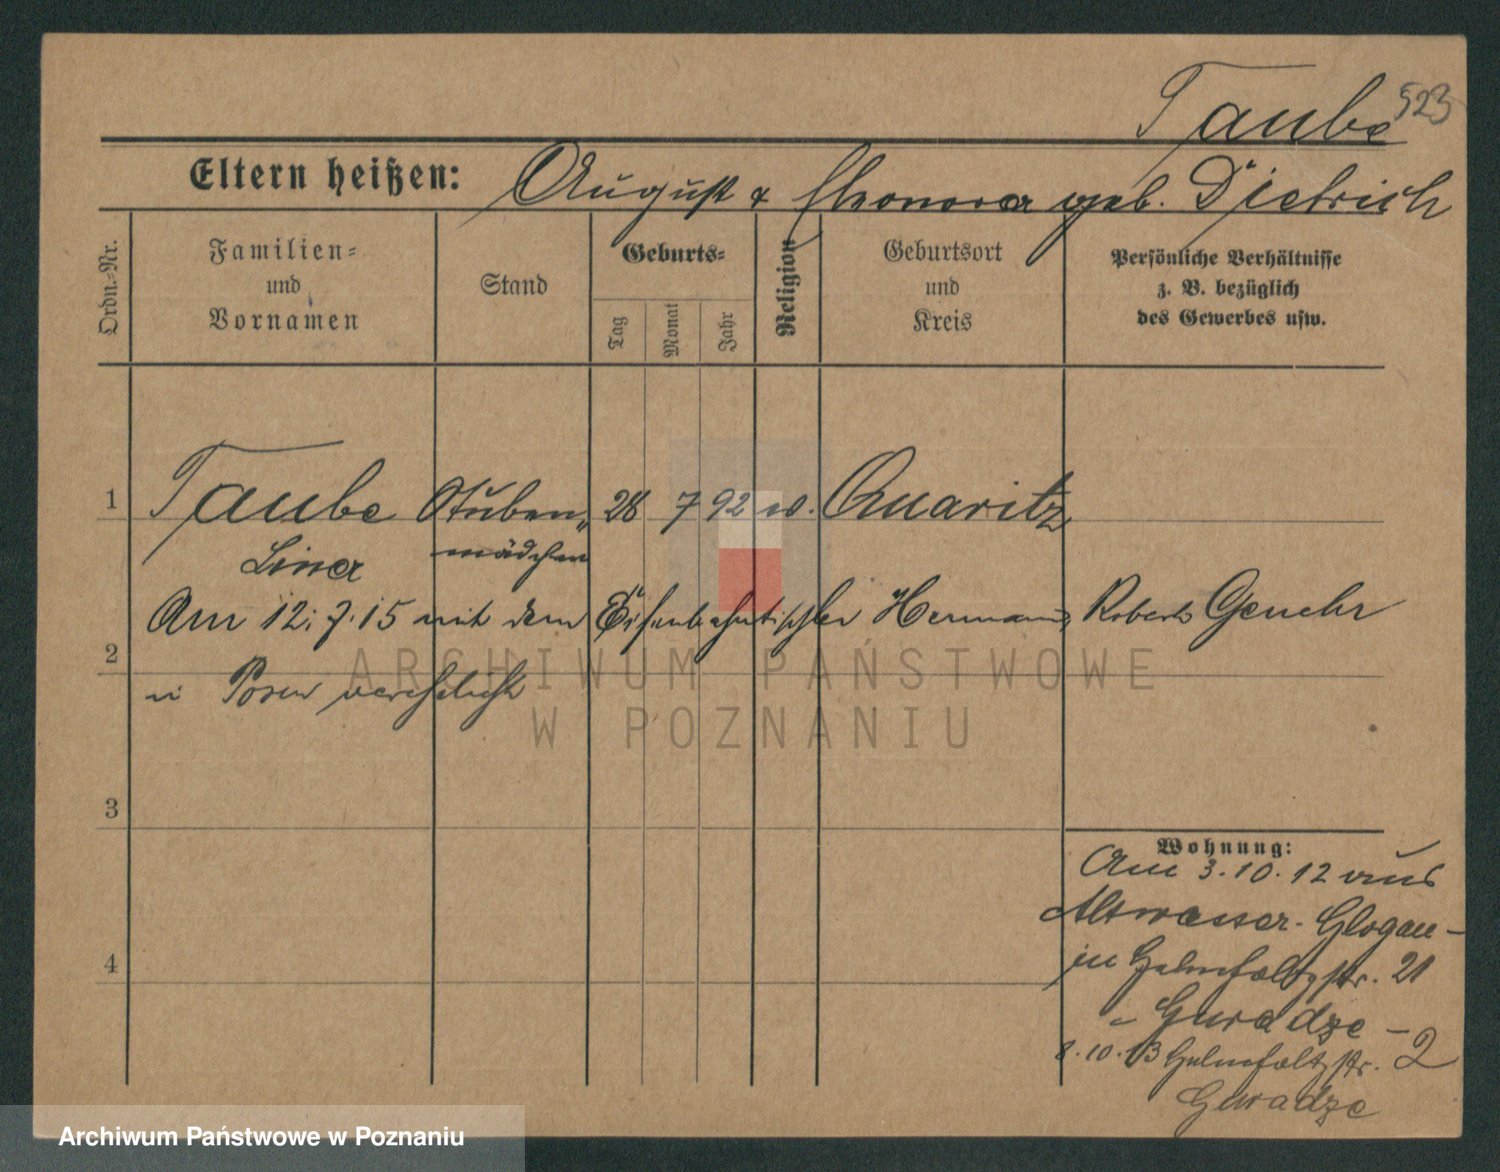 Taube 523
Eltern heißen: August & Eleonora geb. Dietrich
Ordn.-Nr.
Familien- und Vornamen
Stand
Geburts-
Tag
Monat
Jahr
Religion
Geburtsort und Kreis
Persönliche Verhältnisse
z. B. bezüglich
des Gewerbes usw.
1 Taube Stuben- 28 7 92 ev. Quaritz
Lina mädchen
Am 12.7.15 mit dem Eisenbahntischler Hermann Robert
2
in Posen verehelicht
ARCHIWUM PAŃSTWOWE
W POZNANIU
3
Wohnung:
Am 3.10.12 aus
Altwasser-Glogau-
4
in str. 21
8.10.13 str. 2
Archiwum Państwowe w Poznaniu